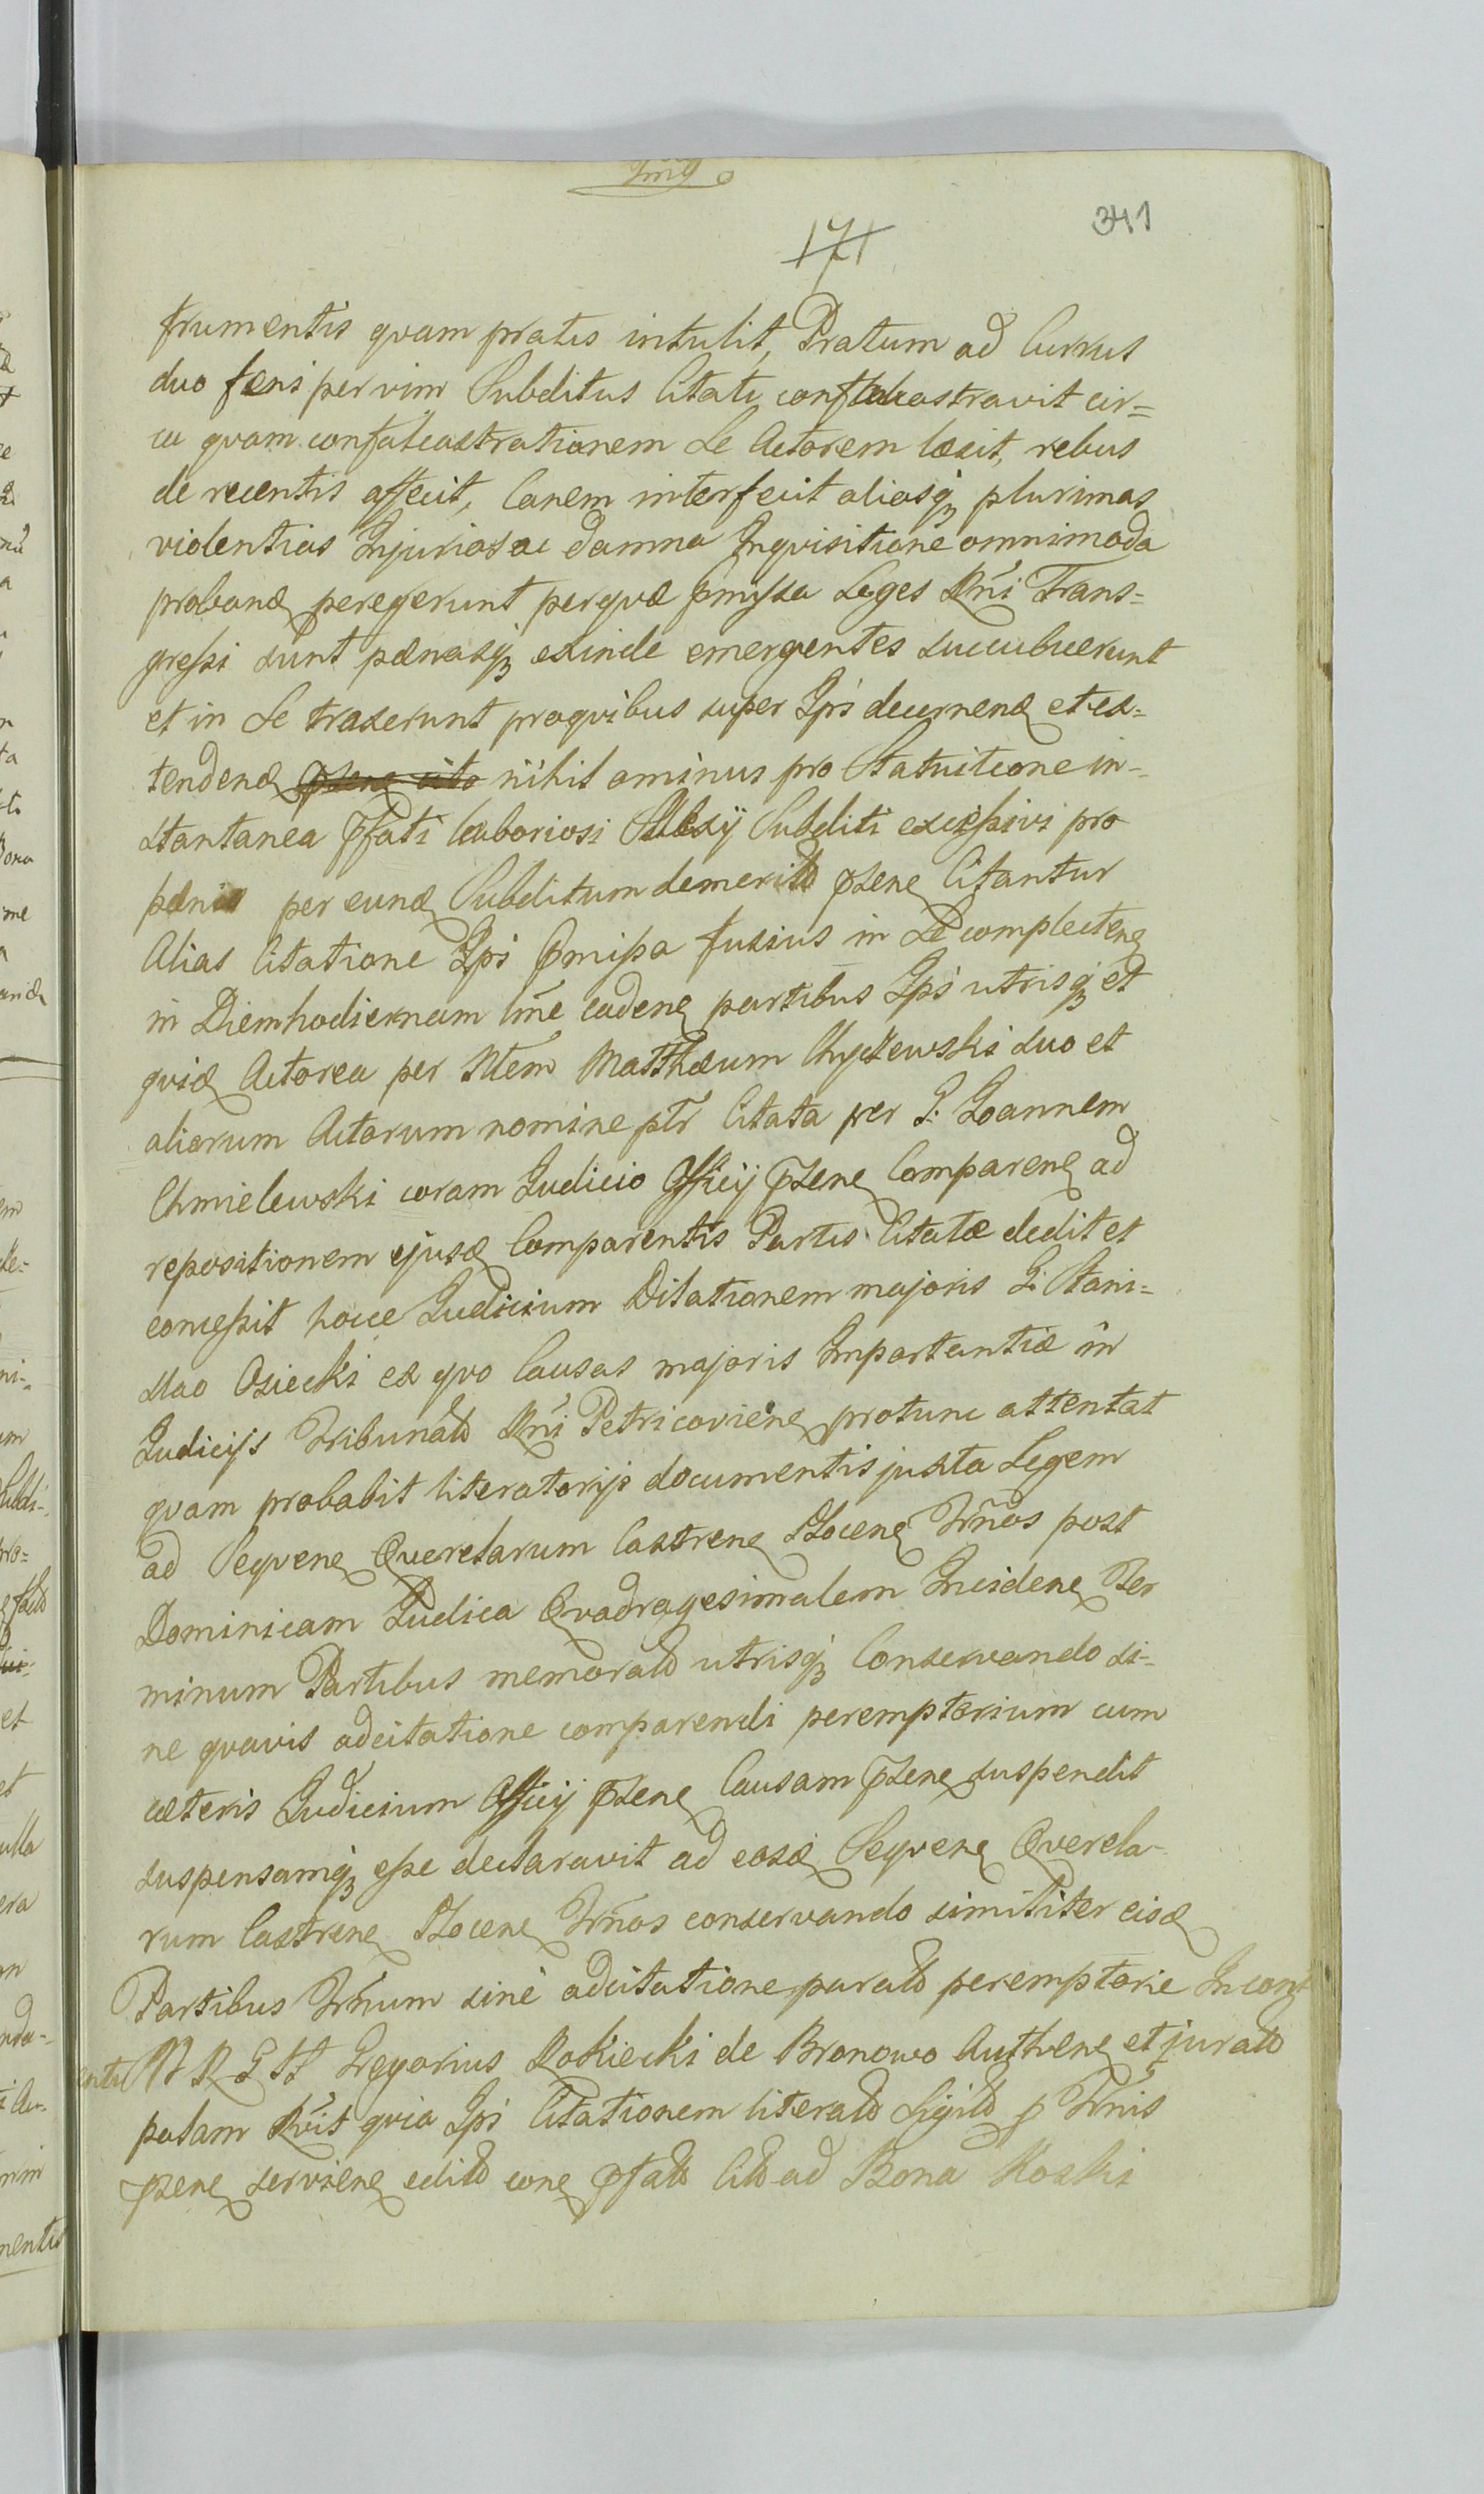 341
171
frumentis quam pratis intulit, Pratum ad Currus
duo feni per vim Subditus Citati confalcastravit cir=
ca quam confalcastrationem Se Actorem læsit, rebus
de recentis affecit, Canem interfecit aliasq plurimas
violentias Injurias ac damna Inquisitione omnimoda
proband peregerunt perquæ præmissa Leges Rni Trans=
gressi sunt pænasq exinde emergentes succubuerunt
et in Se traxerunt proquibus super Ipś decernend et ex=
tendend nihil ominus pro Statuitione in=
stantanea pfati laboriosi Subditi excessivi pro
pænis per eund Subditum demeritis psene Citantur
Alias Citatione Ipś præmissa fusius in Se complecten
in Diem hodiernam lme caden partibus Ipś utrisq et
quid Actorea per Mtem Matthæum Chyczewski suo et
aliorum Actorum nomine ptr Citata per G: Joannem
Chmielewski coram Judicio Officij psen Comparen ad
repositionem ejusd Comparentis Partis Citatæ dedit et
concessit hocce Judicium Dilationem majoris G: Stani=
slao Osiecki ex quo Causas majoris Importantiæ in
Judicijs Tribunalis Rni Petricovien protunc attentat
quam probabit literatorijs documentis juxta Legem
ad Sequen Querelarum Castren Plocen Trnos post
Dominicam Judica Quadragesimalem Inciden Ter
minum Partibus memoratis utrisq Conservando si=
ne quavis adcitatione comparendi peremptorium cum
cæteris Judicium Officij psen Causam psen suspendit
suspensamq esse declaravit ad eosd Sequen Querela-
rum Castren Plocen Trnos conservando similiter eisd
Partibus Trnum sine adcitatione paratis peremptorie In cont
Gregorius Rokicki de Bronowo Authen et juratus
palam Rvit quia Ipś Citationem literalis Sigilis p Trnis
psen servien editis con pfatis Citt ad Bona Koski